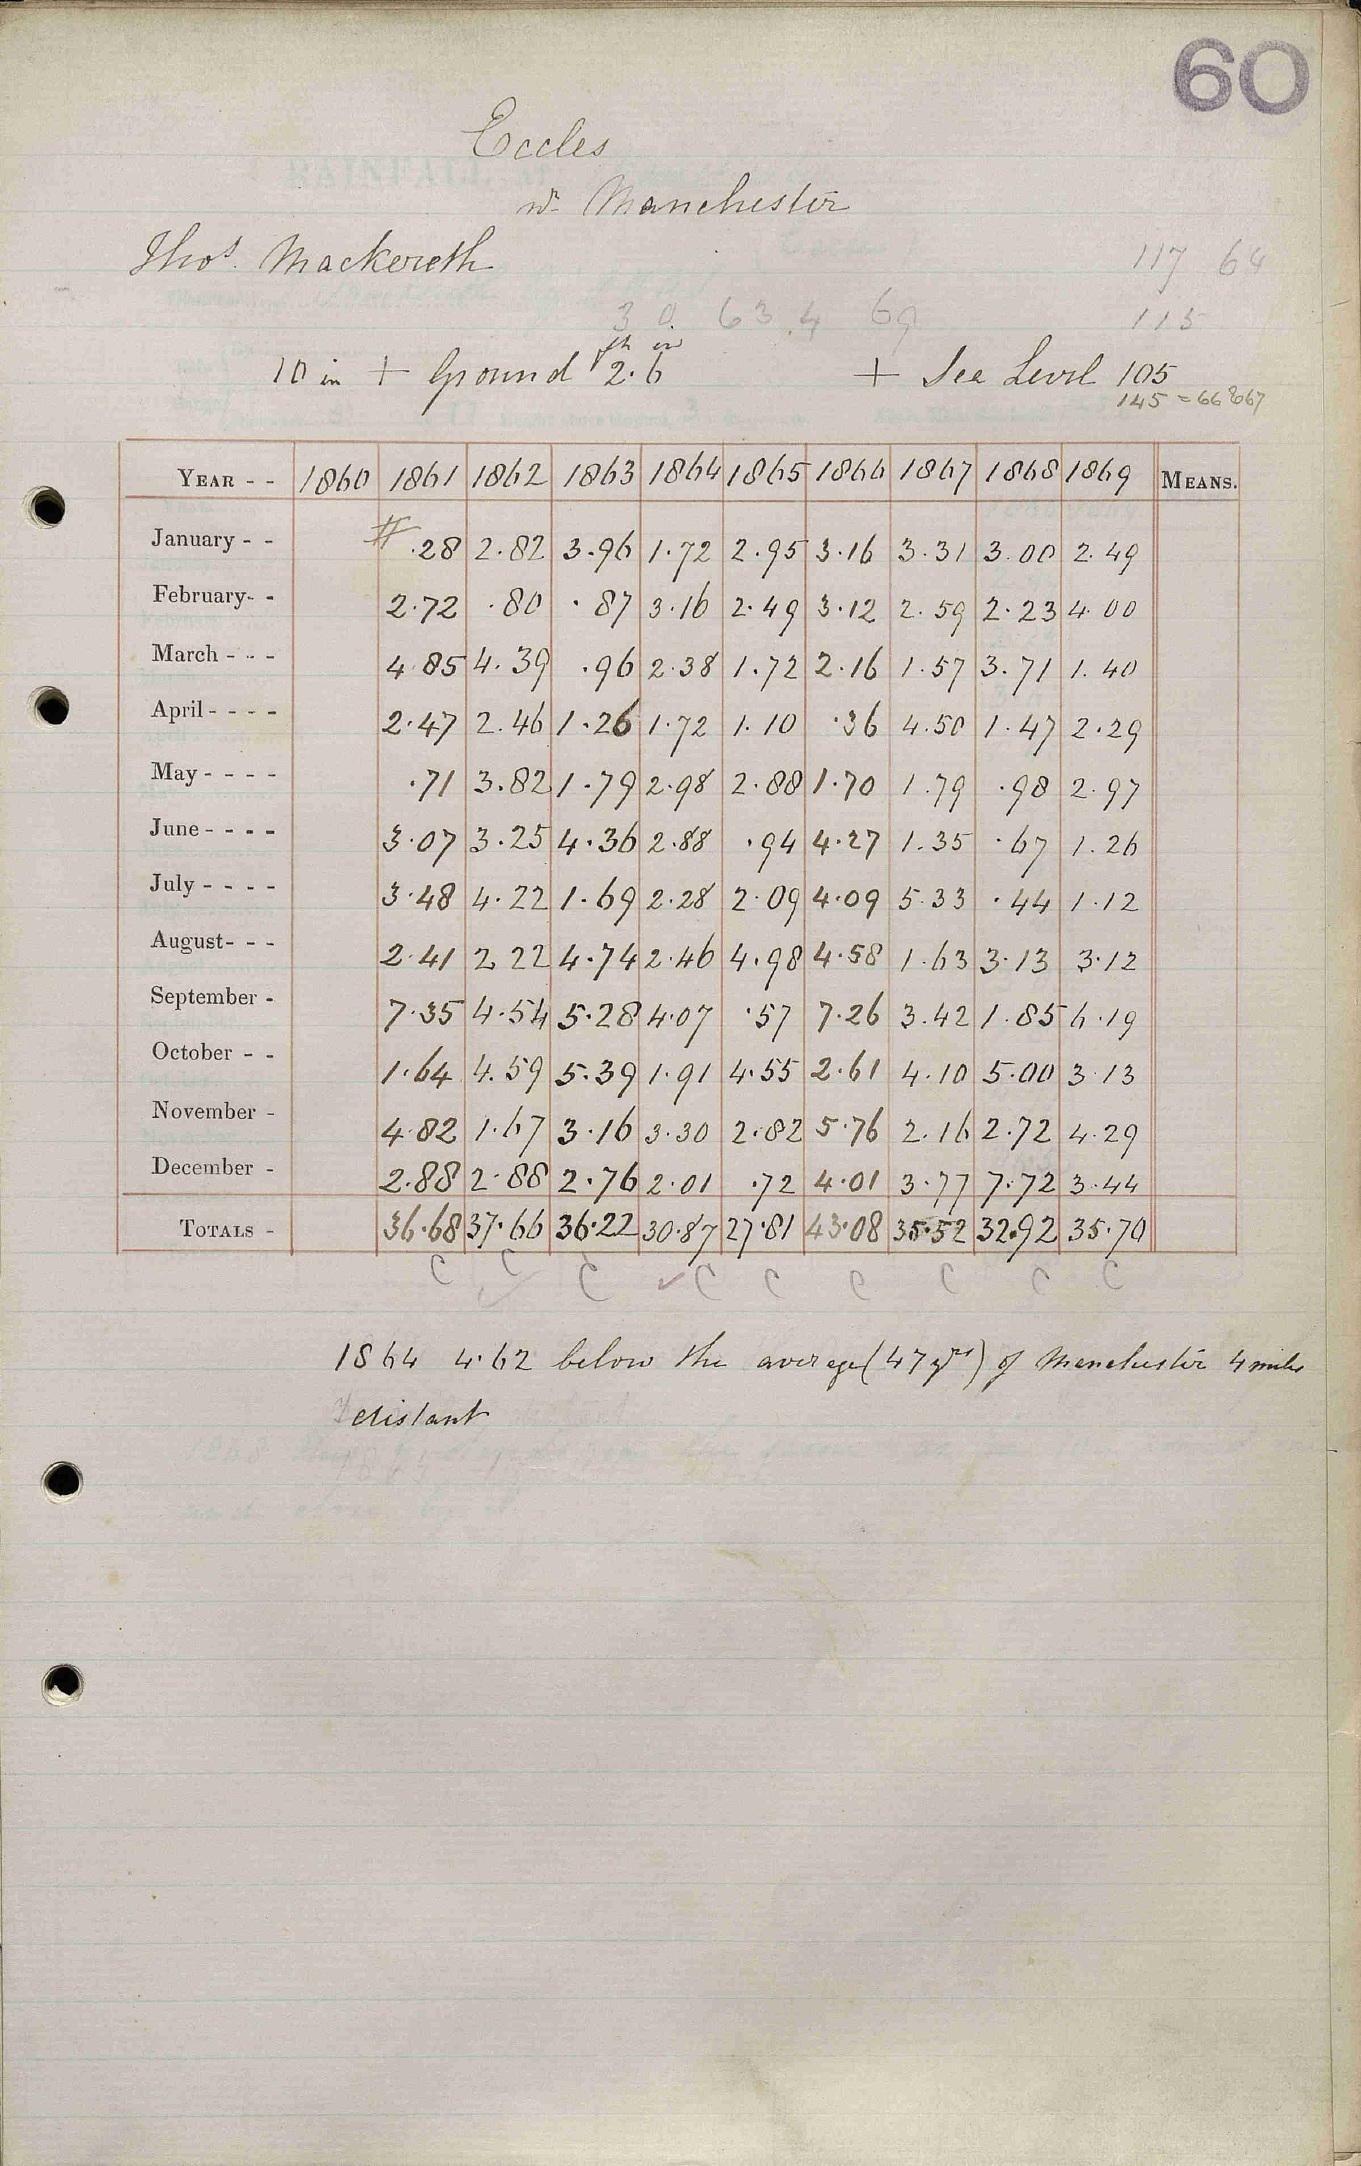 60
Eccles
nr Manchester
Thos. Mackereth
117 64
3 0 63.4 69 115
ft in
10 in + Ground 2.6 + Sea Level 105
145 = 66 & 67
YEAR - - 1860 1861 1862 1863 1864 1865 1866 1867 1868 1869 MEANS.
January - - # .28 2.82 3.96 1.72 2.95 3.16 3.31 3.00 2.49
February- - 2.72 .80 .87 3.16 2.49 3.12 2.59 2.23 4.00
March - - - 4.85 4.39 .96 2.38 1.72 2.16 1.57 3.71 1.40
April - - - - 2.47 2.46 1.26 1.72 1.10 .36 4.50 1.47 2.29
May - - - - .71 3.82 1.79 2.98 2.88 1.70 1.79 .98 2.97
June - - - - 3.07 3.25 4.36 2.88 .94 4.27 1.35 .67 1.26
July - - - - 3.48 4.22 1.69 2.28 2.09 4.09 5.33 .44 1.12
August- - - 2.41 2.22 4.74 2.46 4.98 4.58 1.63 3.13 3.12
September - 7.35 4.54 5.28 4.07 .57 7.26 3.42 1.85 6.19
October - - 1.64 4.59 5.39 1.91 4.55 2.61 4.10 5.00 3.13
November - 4.82 1.67 3.16 3.30 2.82 5.76 2.16 2.72 4.29
December - 2.88 2.88 2.76 2.01 .72 4.01 3.77 7.72 3.44
TOTALS - 36.68 37.66 36.22 30.87 27.81 43.08 35.52 32.92 35.70
C C C ✓C C C C C C
1864 4.62 below the average (47 yrs) of Manchester 4 miles
distant